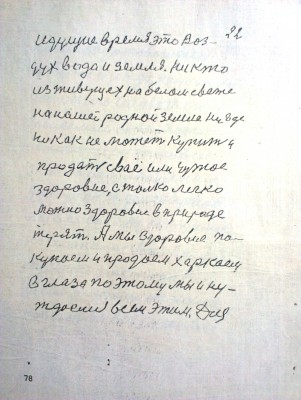 идущие время это воз- 32
дух вода и земля. Никто
из живущех на белом свете
на нашей родной земле нигде
никак не может купит и
продат своё или чужое
здоровие, столко легко
можно здоровие в природе
терят. А мы здоровие по-
купаем и продаем харкаем
в глаза поэтому мы и ну-
ждаемся всем этим. Для
78